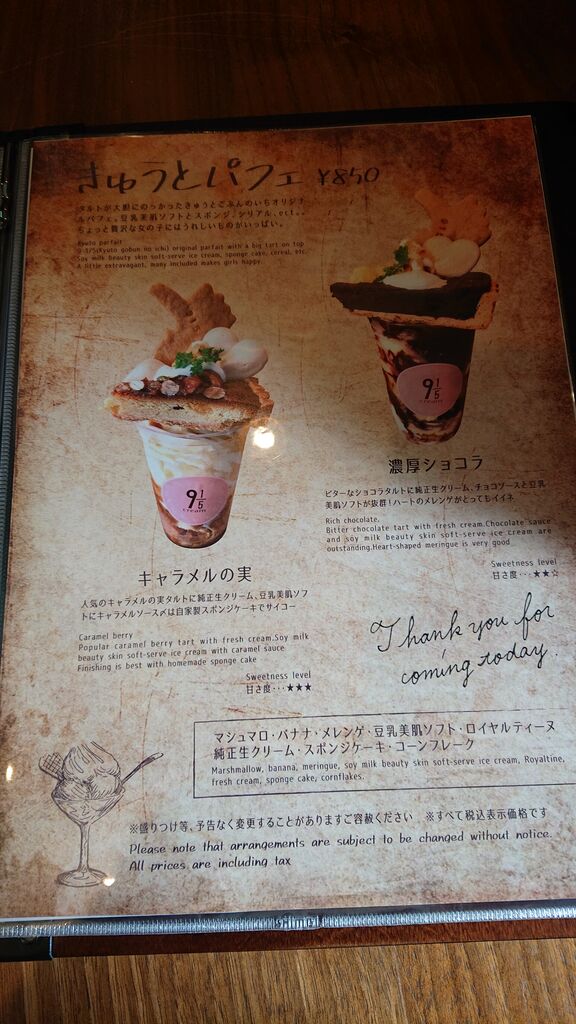 きゅうとパフェ ¥850
タルトが大胆にのっかったきゅうとごぶんのいちオリジナ
ルパフェ。豆乳美肌ソフトとスポンジ、シリアル、etc。
ちょっと贅沢な女の子にはうれしいものがいっぱい。
Kyuto parfait
9 1/5(Kyuto gobun no ichi) original parfait with a big tart on top
Soy milk beauty skin soft-serve ice cream, sponge cake, cereal, etc.
A little extravagant, many included makes girls happy.
9 1/5
cream
9 1/5
cream
濃厚ショコラ
ビターなショコラタルトに純正生クリーム、チョコソースと豆乳
美肌ソフトが抜群!ハートのメレンゲがとってもイイネ
Rich chocolate.
Bitter chocolate tart with fresh cream.Chocolate sauce
and soy milk beauty skin soft-serve ice cream are
outstanding.Heart-shaped meringue is very good
Sweetness level
甘さ度…★★☆
キャラメルの実
人気のキャラメルの実タルトに純正生クリーム、豆乳美肌ソフ
トにキャラメルソース〆は自家製スポンジケーキでサイコー
Caramel berry
Popular caramel berry tart with fresh cream.Soy milk
beauty skin soft-serve ice cream with caramel sauce
Finishing is best with homemade sponge cake
Sweetness level
甘さ度…★★★
Thank you for
coming today.
マシュマロ・バナナ・メレンゲ・豆乳美肌ソフト・ロイヤルティーヌ
純正生クリーム・スポンジケーキ・コーンフレーク
Marshmallow, banana, meringue, soy milk beauty skin soft-serve ice cream, Royaltine,
fresh cream, sponge cake, cornflakes.
※盛りつけ等、予告なく変更することがありますご容赦ください ※すべて税込表示価格です
Please note that arrangements are subject to be changed without notice.
All prices are including tax